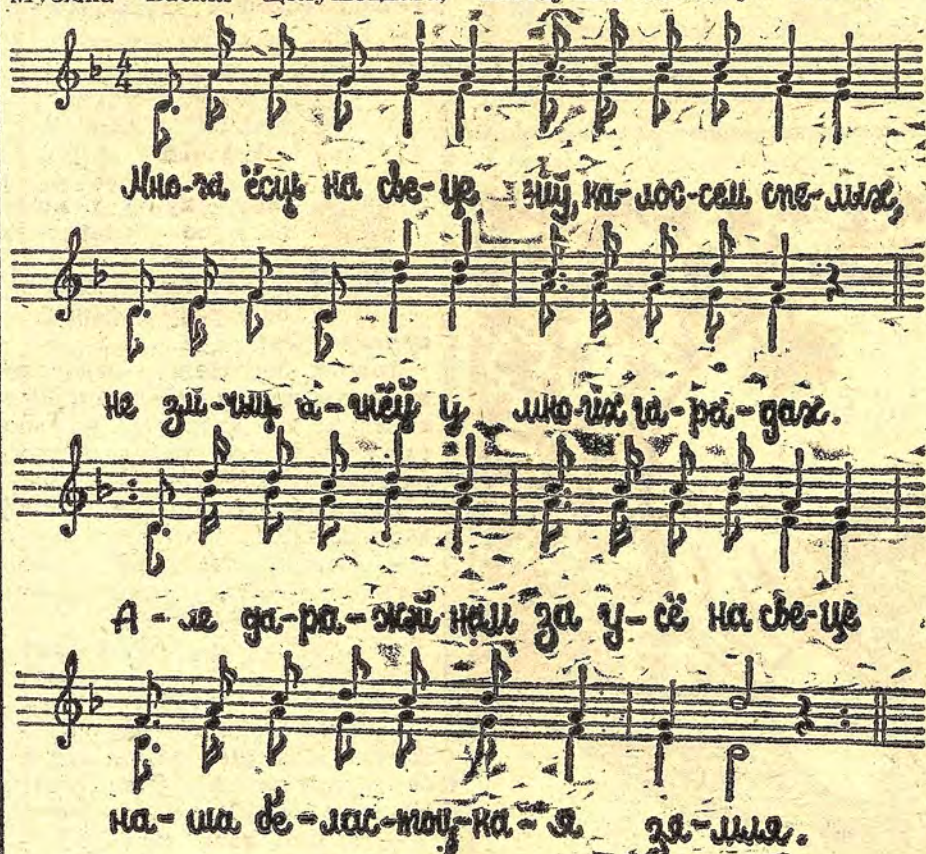 Музыка
4 4
Мно-га ёсць на све-це ніў, ка-лос-сем спе-лых,
не злі-чыць а-гнёў у мно-гіх га-ра-дах.
А-ле да-ра-жэй нам за у-сё на све-це
на-ша бе-лас-тоц-ка-я зя-мля.